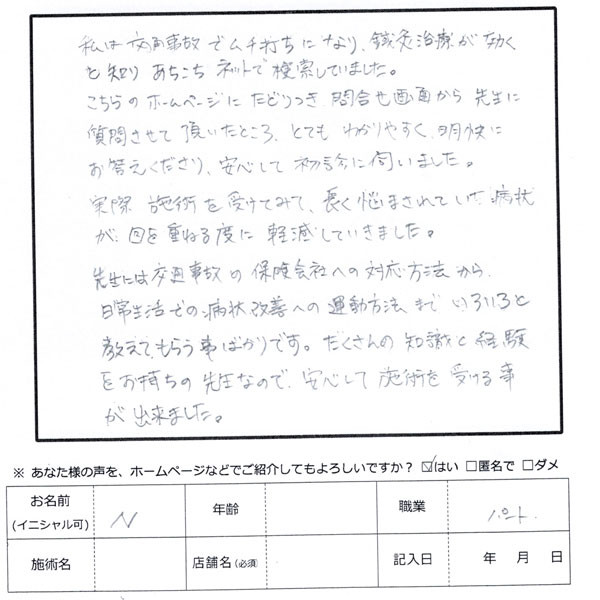 私は交通事故でムチ打ちになり、鍼灸治療が効く
と知りあちこちネットで検索していました。
こちらのホームページにたどりつき、問合せ画面から先生に
質問させて頂いたところ、とてもわかりやすく、明快に
お答えくださり、安心して初診に伺いました。
実際施術を受けてみて、長く悩まされていた病状
が、回を重ねる度に軽減していきました。
先生には交通事故の保険会社への対応方法から、
日常生活での病状改善への運動方法までいろいろと
教えてもらう事ばかりです。たくさんの知識と経験
をお持ちの先生なので、安心して施術を受ける事
が出来ました。
※ あなた様の声を、ホームページなどでご紹介してもよろしいですか？ ☑はい □匿名で □ダメ
お名前 N 年齢 職業 パート.
(イニシャル可)
施術名 店舗名（必須） 記入日 年 月 日